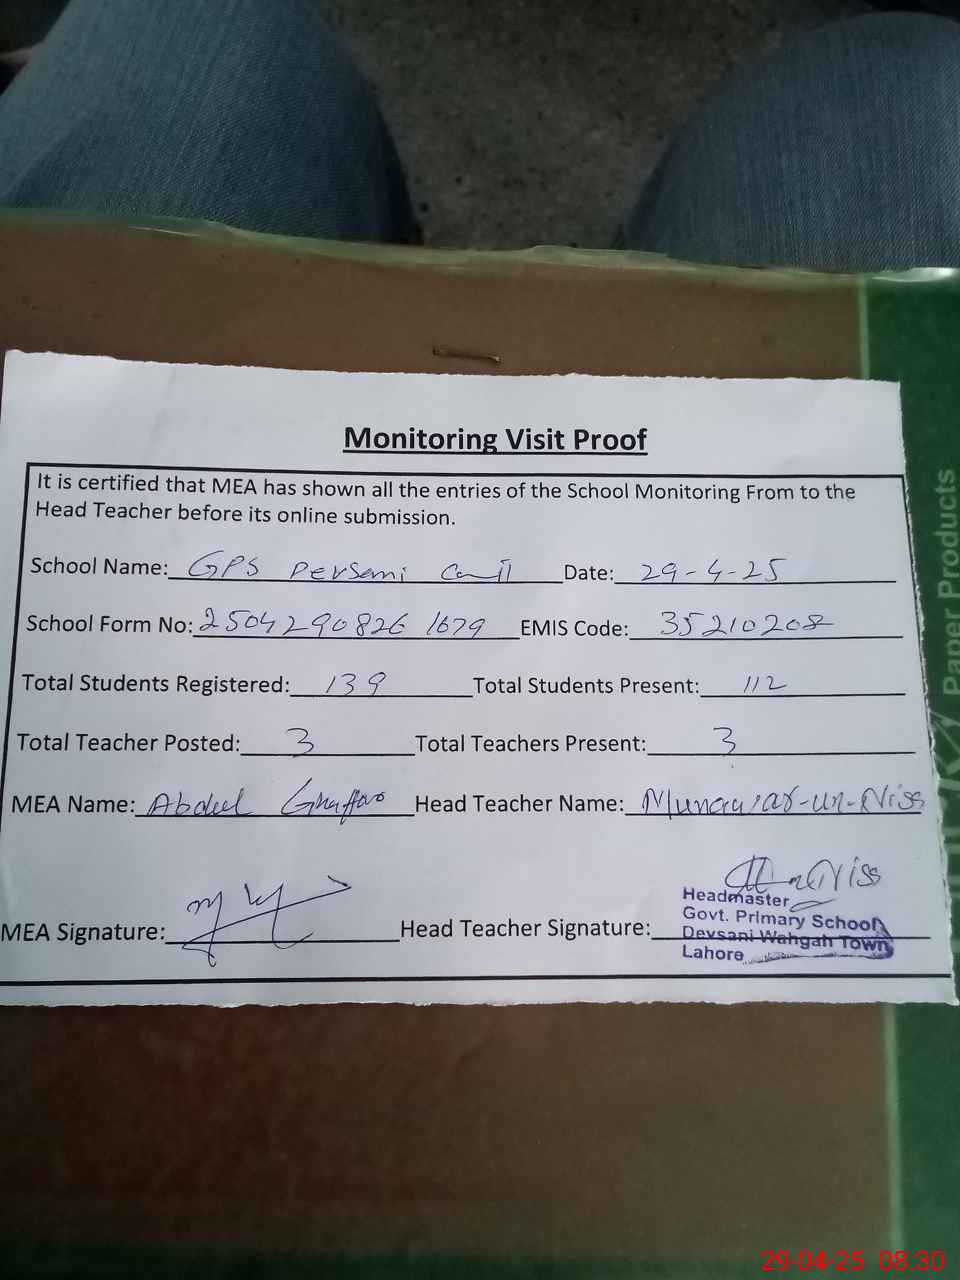 Monitoring Visit Proof
It is certified that MEA has shown all the entries of the School Monitoring From to the
Head Teacher before its online submission.
School Name: GPS Devsani Date: 29-4-25
School Form No: 2504290826 1679 EMIS Code: 35210208
Total Students Registered: 139 Total Students Present: 112
Total Teacher Posted: 3 Total Teachers Present: 3
MEA Name: Abdul Ghaffar Head Teacher Name: Munawar-un-Niss
MEA Signature: Head Teacher Signature:
Headmaster
Govt. Primary School
Devsani Wahgah Town
Lahore
Paper Products
29-04-25 08.30